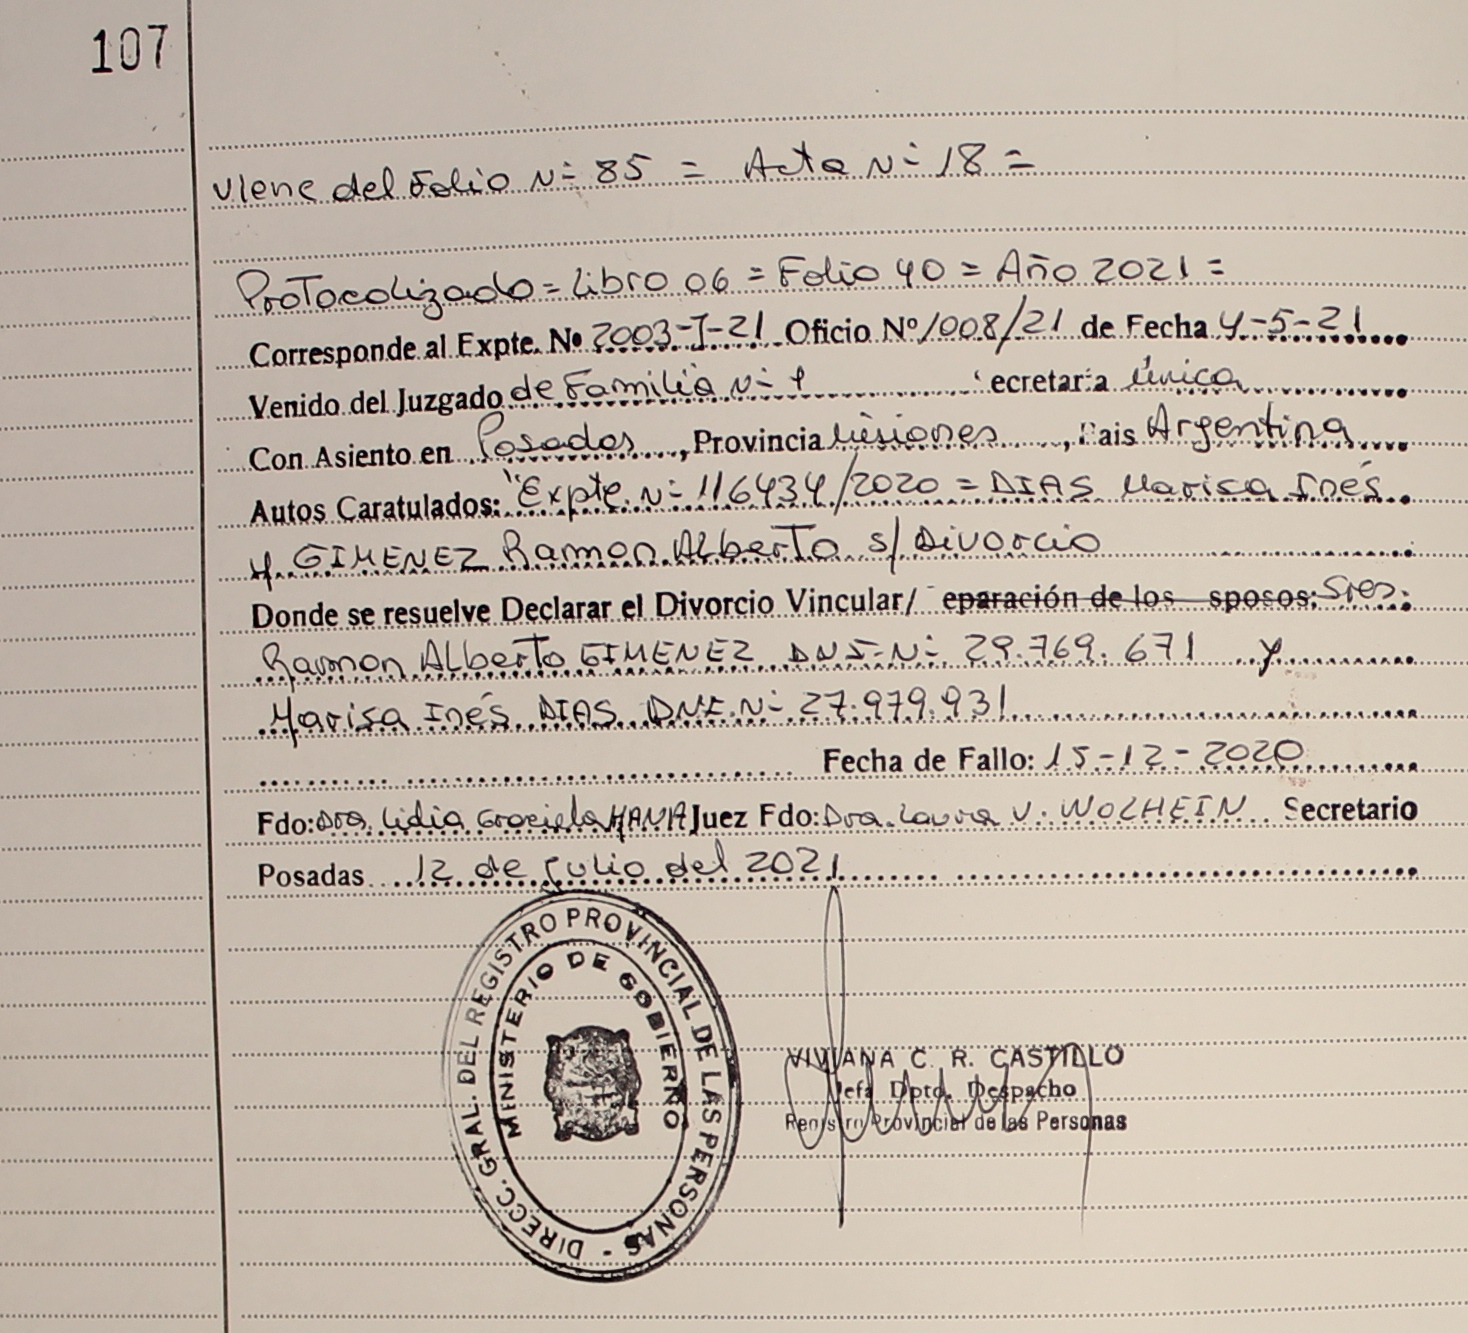 107
Viene del Folio N- 85 = Acta N- 18 =
Protocolizado = Libro 06 = Folio 40 = Año 2021 =
Corresponde al Expte. Nº 2003-J-21 Oficio Nº 1008/21 de Fecha 4-5-21
Venido del Juzgado de Familia N- 1 ecretaria única
Con Asiento en Posadas, Provincia Misiones, Pais Argentina
Autos Caratulados: "Expte. N- 116434/2020 = DIAS Marisa Inés
y GIMENEZ Ramon Alberto s/ Divorcio
Donde se resuelve Declarar el Divorcio Vincular/ eparación de los sposos: Sres:
Ramon Alberto GIMENEZ DNI-N- 29.769.671 y
Marisa Inés DIAS DNI.N- 27.979.931
Fecha de Fallo: 15-12-2020
Fdo: Dra. Lidia Graciela Juez Fdo: Dra. Laura V. WOLHEIN Secretario
Posadas 12 de Julio del 2021
DIRECC. GRAL. DEL REGISTRO PROVINCIAL DE LAS PERSONAS -
MINISTERIO DE GOBIERNO
VIVIANA C. R. CASTILLO
Jefa Dpto. Despacho
Registro Provincial de las Personas